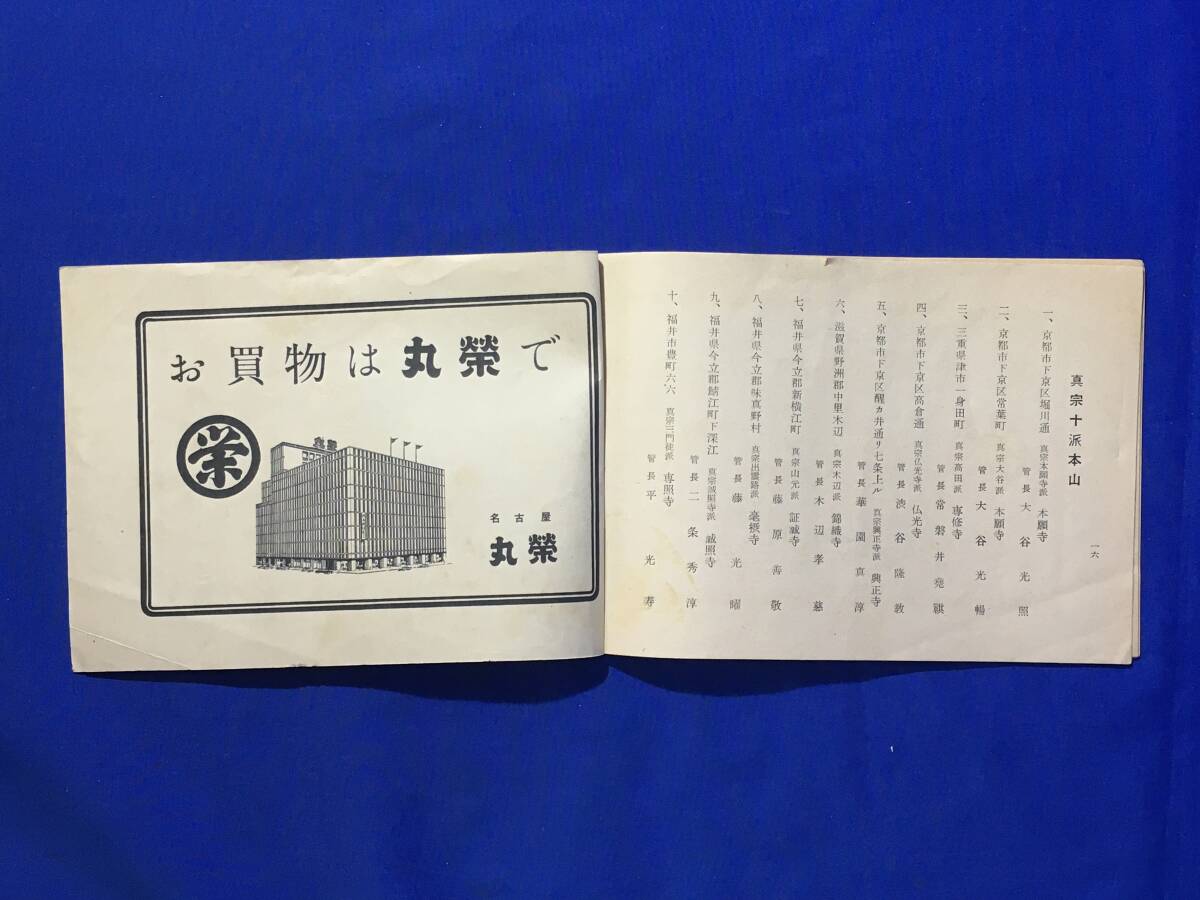 真宗十派本山
一六
一、京都市下京区堀川通 真宗本願寺派 本願寺
管長 大谷光照
二、京都市下京区常葉町 真宗大谷派 本願寺
管長 大谷光暢
三、三重県津市一身田町 真宗高田派 専修寺
管長 常磐井堯祺
四、京都市下京区高倉通 真宗仏光寺派 仏光寺
管長 渋谷隆教
五、京都市下京区醒カ井通リ七条上ル 真宗興正寺派 興正寺
管長 華園真淳
六、滋賀県野洲郡中里木辺 真宗木辺派 錦織寺
管長 木辺孝慈
七、福井県今立郡新横江町 真宗山元派 証誠寺
管長 藤原善敬
八、福井県今立郡味真野村 真宗出雲路派 毫摂寺
管長 藤光曜
九、福井県今立郡鯖江町下深江 真宗誠照寺派 誠照寺
管長 二条秀淳
十、福井市豊町六、六 真宗三門徒派 専照寺
管長 平光寿
お買物は丸榮で
榮
丸榮
名古屋
丸榮